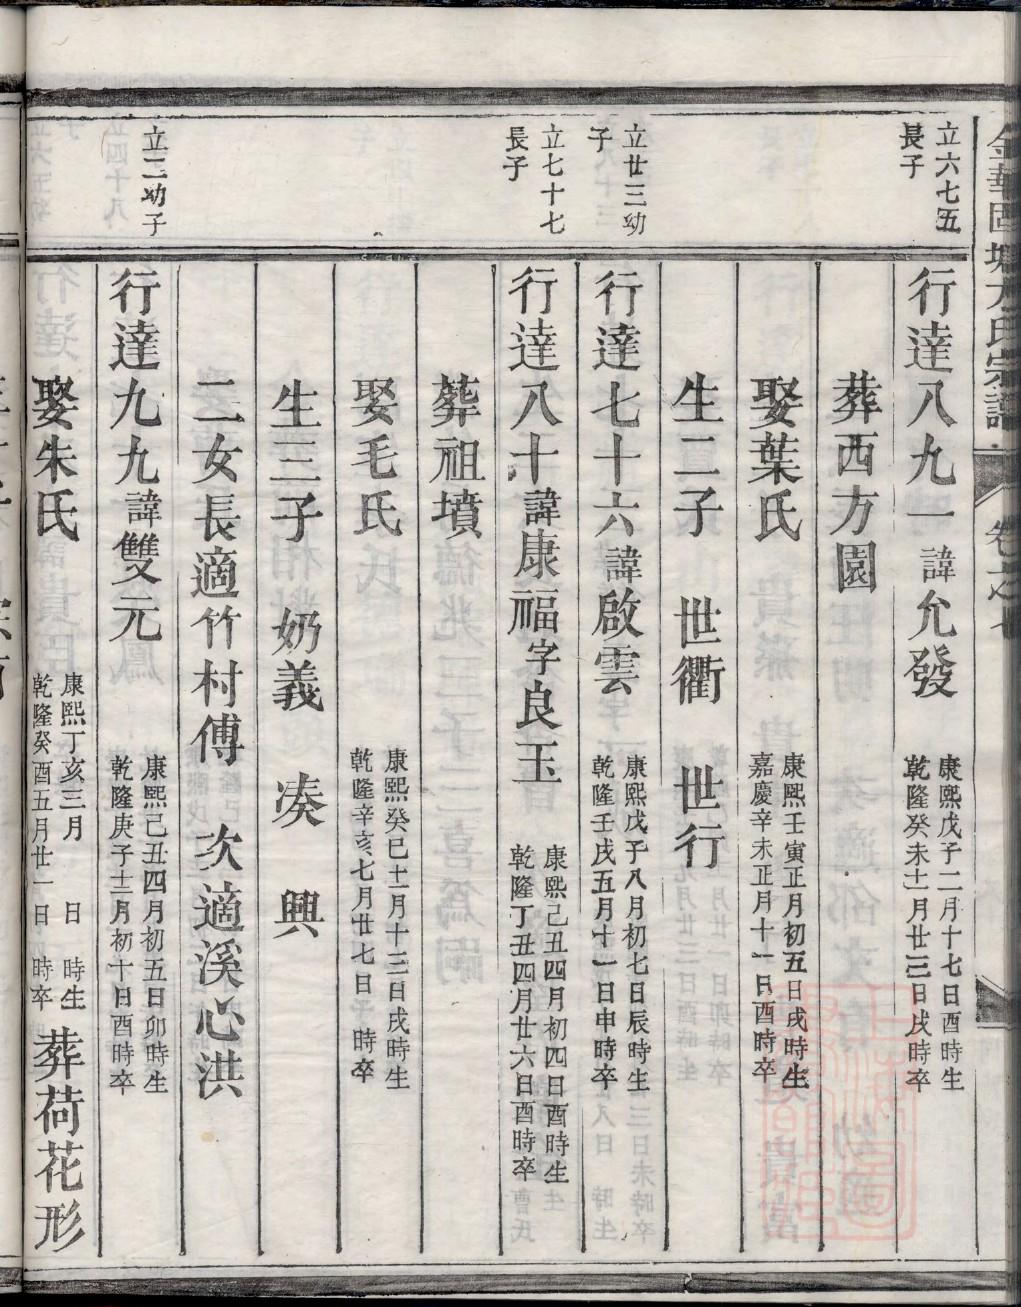 金華固塘方氏宗譜
卷之七
立六七五
長子
行達八九一諱允發
康熙戊子二月十七日酉時生
乾隆癸未十一月廿三日戌時卒
葬西方園
娶葉氏
康熙壬寅正月初五日戌時生
嘉慶辛未正月十一日酉時卒
生二子 世衢 世行
立廿三幼
子
行達七十六諱啟雲
康熙戊子八月初七日辰時生
乾隆壬戌五月十一日申時卒
立七十七
長子
行達八十諱康福字良玉
康熙己丑四月初四日酉時生
乾隆丁丑四月廿六日酉時卒
葬祖墳
娶毛氏
康熙癸巳十一月十三日戌時生
乾隆辛亥七月廿七日子時卒
生三子 奶義 凑 興
二女長適竹村傅 次適溪心洪
立二幼子
行達九九諱雙元
康熙己丑四月初五日卯時生
乾隆庚子十二月初十日酉時卒
娶朱氏
康熙丁亥三月 日 時生
乾隆癸酉五月廿一日 時卒
葬荷花形